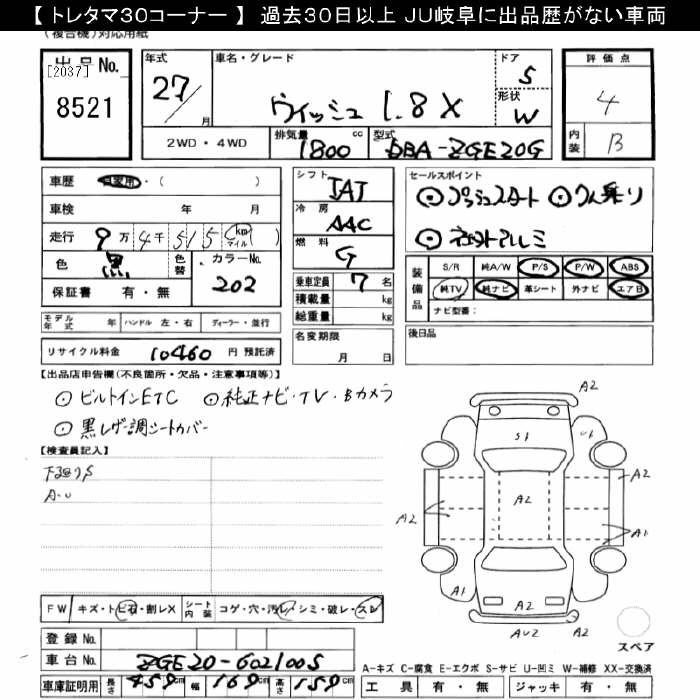 【 トレタマ30コーナー 】 過去30日以上 JU岐阜に出品歴がない車両
(複合機)対応用紙
出品No.
[2037]
8521
年式
27/月
車名・グレード
ウィッシュ 1.8X
ドア
5
形状
W
評価点
4
内装
B
2WD・4WD
排気量
1800 cc
型式
DBA-ZGE20G
車歴 自家用・( )
車検 年 月
走行 9万 4千 515 km マイル ( )
色 黒
色替
カラーNo.
202
保証書 有・無
シフト
IAT
冷房
AAC
燃料
G
乗車定員 7 名
積載量 kg
総重量 kg
名変期限
月 日
セールスポイント
⊙プッシュスタート ⊙7人乗り
⊙社外アルミ
装備品
S/R 純A/W P/S P/W ABS
純TV 純ナビ 革シート 外ナビ エアB
ナビ型番:
後日品
モデル年式 年 ハンドル 左・右 ディーラー・並行
リサイクル料金 10460 円 預託済
【出品店申告欄(不良箇所・欠品・注意事項等)】
⊙ビルトインETC ⊙純正ナビ・TV・Bカメラ
⊙黒レザー調シートカバー
【検査員記入】
下廻りS
A・U
FW キズ・トビ石・割レX
シート内装 コゲ・穴・汚レ・シミ・破レ・スレ
登録No.
車台No. ZGE20-6021005
車庫証明用 長さ 459 cm 幅 169 cm 高さ 159 cm
A2
S1
U1
A2
A2
A2
A2
A1
A1
A2
AU2
A2
スペア
A-キズ C-腐食 E-エクボ S-サビ U-凹ミ W-補修 XX-交換済
工具 有・無 ジャッキ 有・無